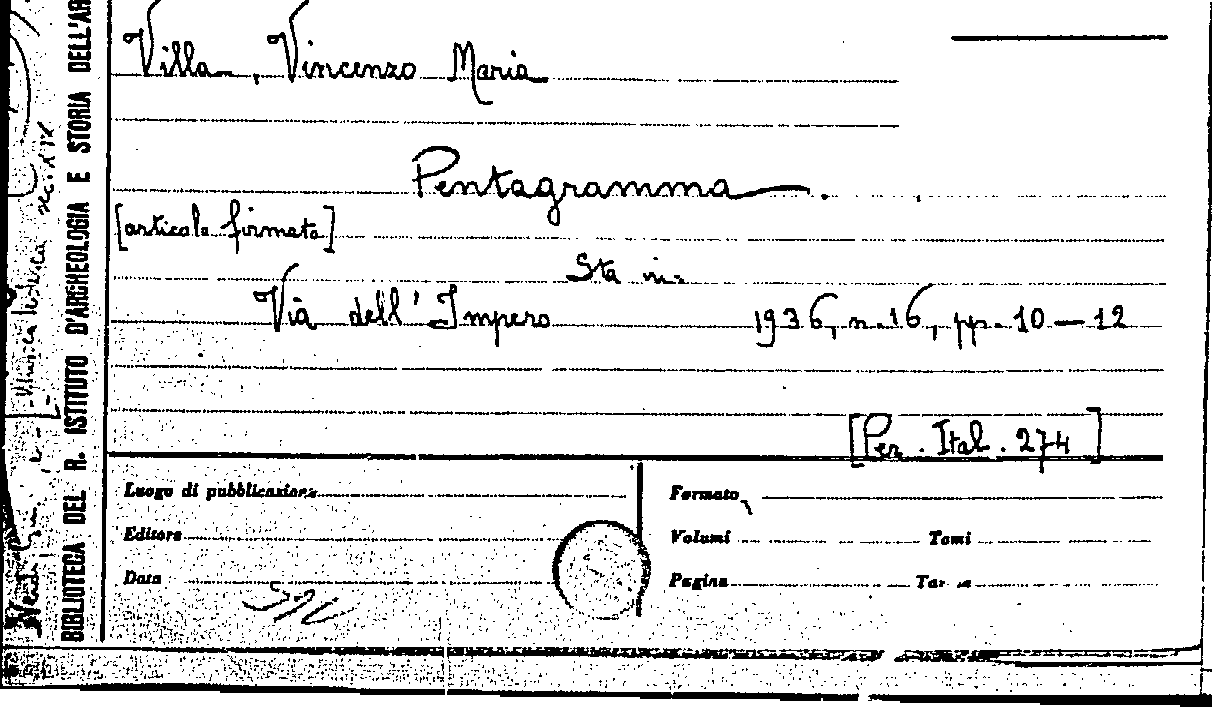 Villa, Vincenzo Maria
Pentagramma.
[articolo firmato]
Sta in:
Via dell'Impero 1936, n. 16, pp. 10-12
[Per. Ital. 274]
Luogo di pubblicazione Formato
Editore Volumi Tomi
Data Pagine
BIBLIOTECA DEL R. ISTITUTO D'ARCHEOLOGIA E STORIA DELL'AR